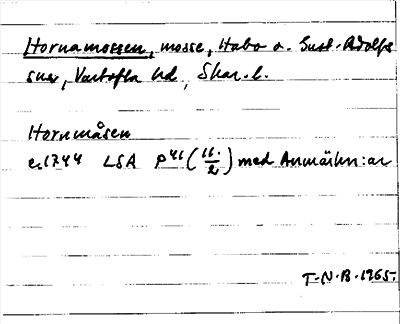 Hornamossen, mosse, Habo o. Gust. Adolfs
snr, Vartofta hd, Skar. l.
Hornmåsen
c. 1744 LSA P 41 (11./2) med Anmärkn:ar
T.N.B. 1965.